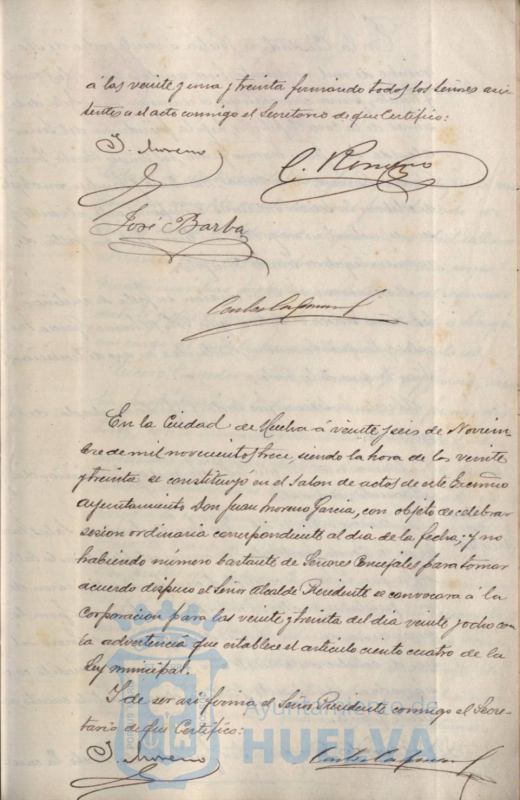 á las veinte y una y treinta firmando todos los Señores asis
tentes a el acto conmigo el Secretario de que Certifico:
J. Moreno
C. Romero
José Barba
En la Ciudad de Huelva á veinte y seis de Noviem
bre de mil novecientos trece, siendo la hora de las veinte
y treinta se constituyó en el Salon de actos de este Excmo
Ayuntamiento Don Juan Moreno Garcia, con objeto de celebrar
sesion ordinaria correspondiente al dia de la fecha; y no
habiendo número bastante de Señores Concejales para tomar
acuerdo dispuso el Señor Alcalde Presidente se convocara á la
Corporacion para las veinte y treinta del dia veinte y ocho con
la advertencia que establece el articulo ciento cuatro de la
Ley municipal.
Y de ser asi firma el Señor Presidente conmigo el Secre-
tario de que Certifico:
J. Moreno
Ayuntamiento de
HUELVA